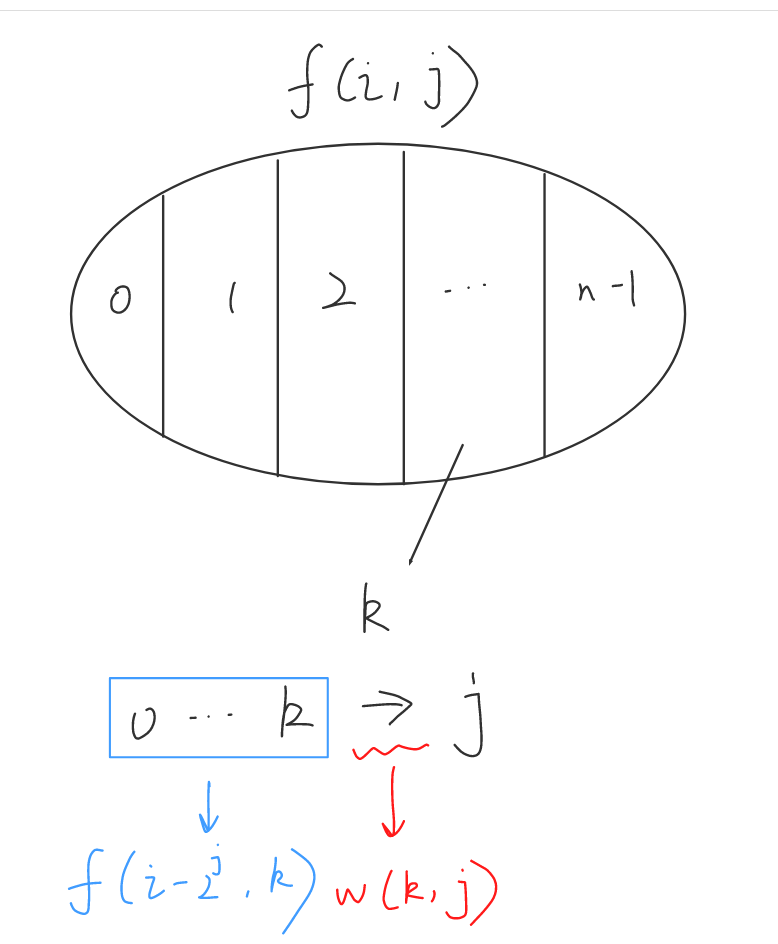 f(i, j)
0 1 2 ... n-1
k
0 ... k → j
f(i-2^j, k) w(k, j)